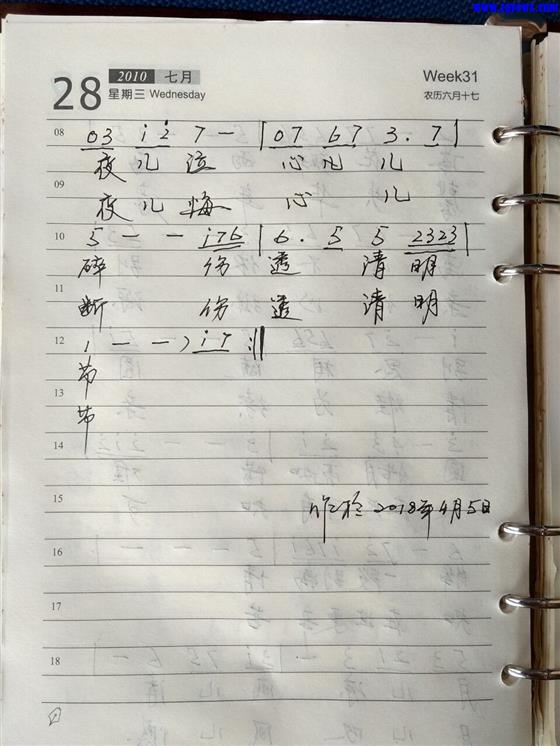 www.cqjews.com
28 2010 七月 Week31
星期三 Wednesday 农历六月十七
08 03 i 2 7 — | 07 67 3. 7 |
夜儿泣 心儿儿
09
夜儿悔 心儿
10 5 — — i76 | 6. 5 5 2323 |
碎 伤透 清明
11
断 伤透 清明
12 1 — — > i7 :||
节
13
节
14
15
作於 2018年4月5日
16
17
18